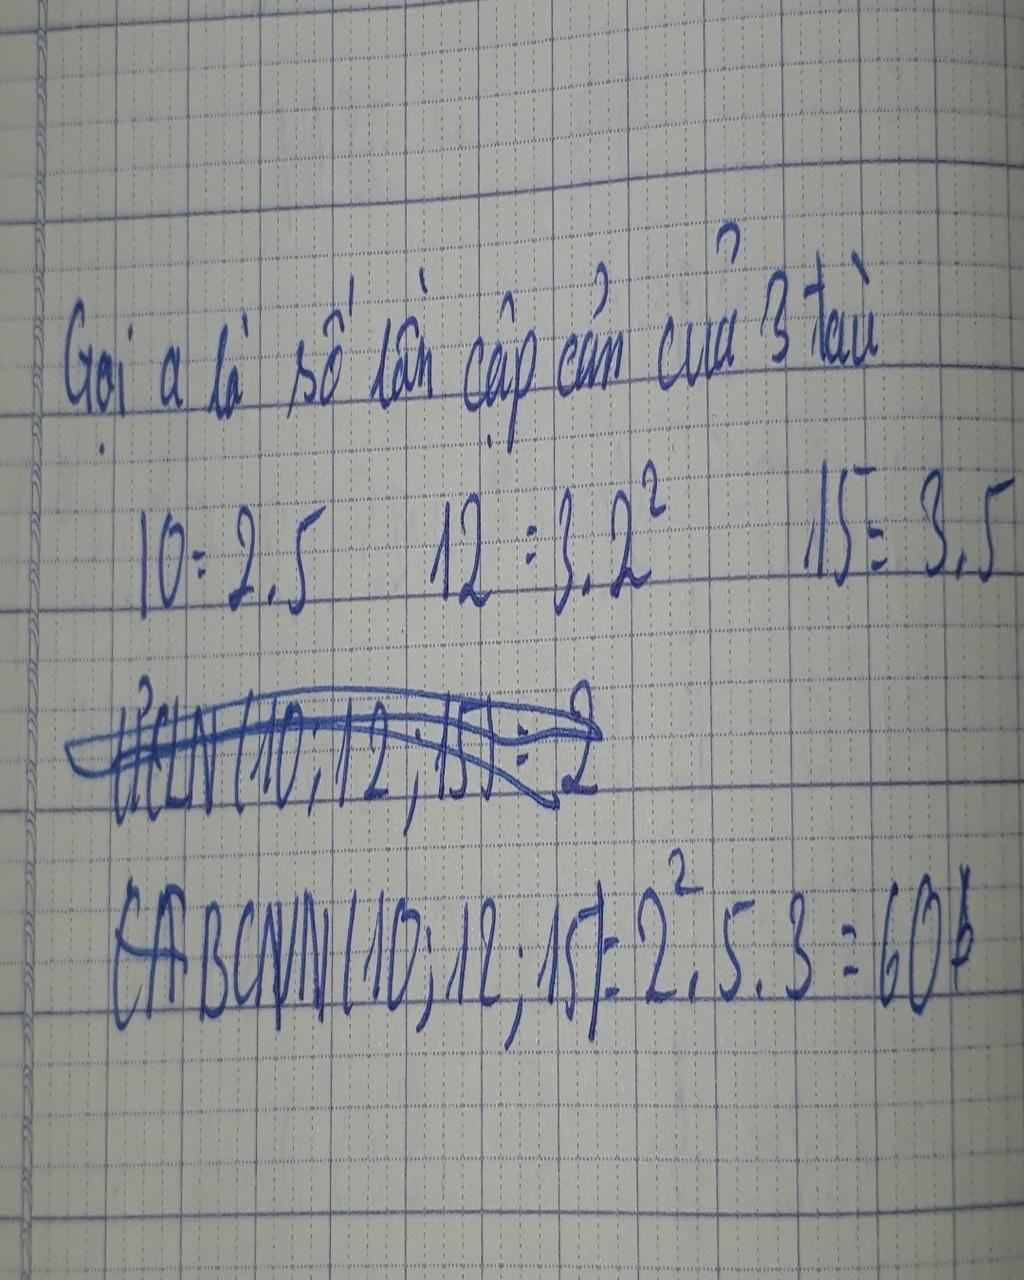 Gọi a là số lần cập cản của 3 tàu
10 = 2.5 12 = 3.2² 15 = 3.5
ƯCLN (10; 12; 15) = 2
BCNN (10; 12; 15) = 2².5.3 = 60